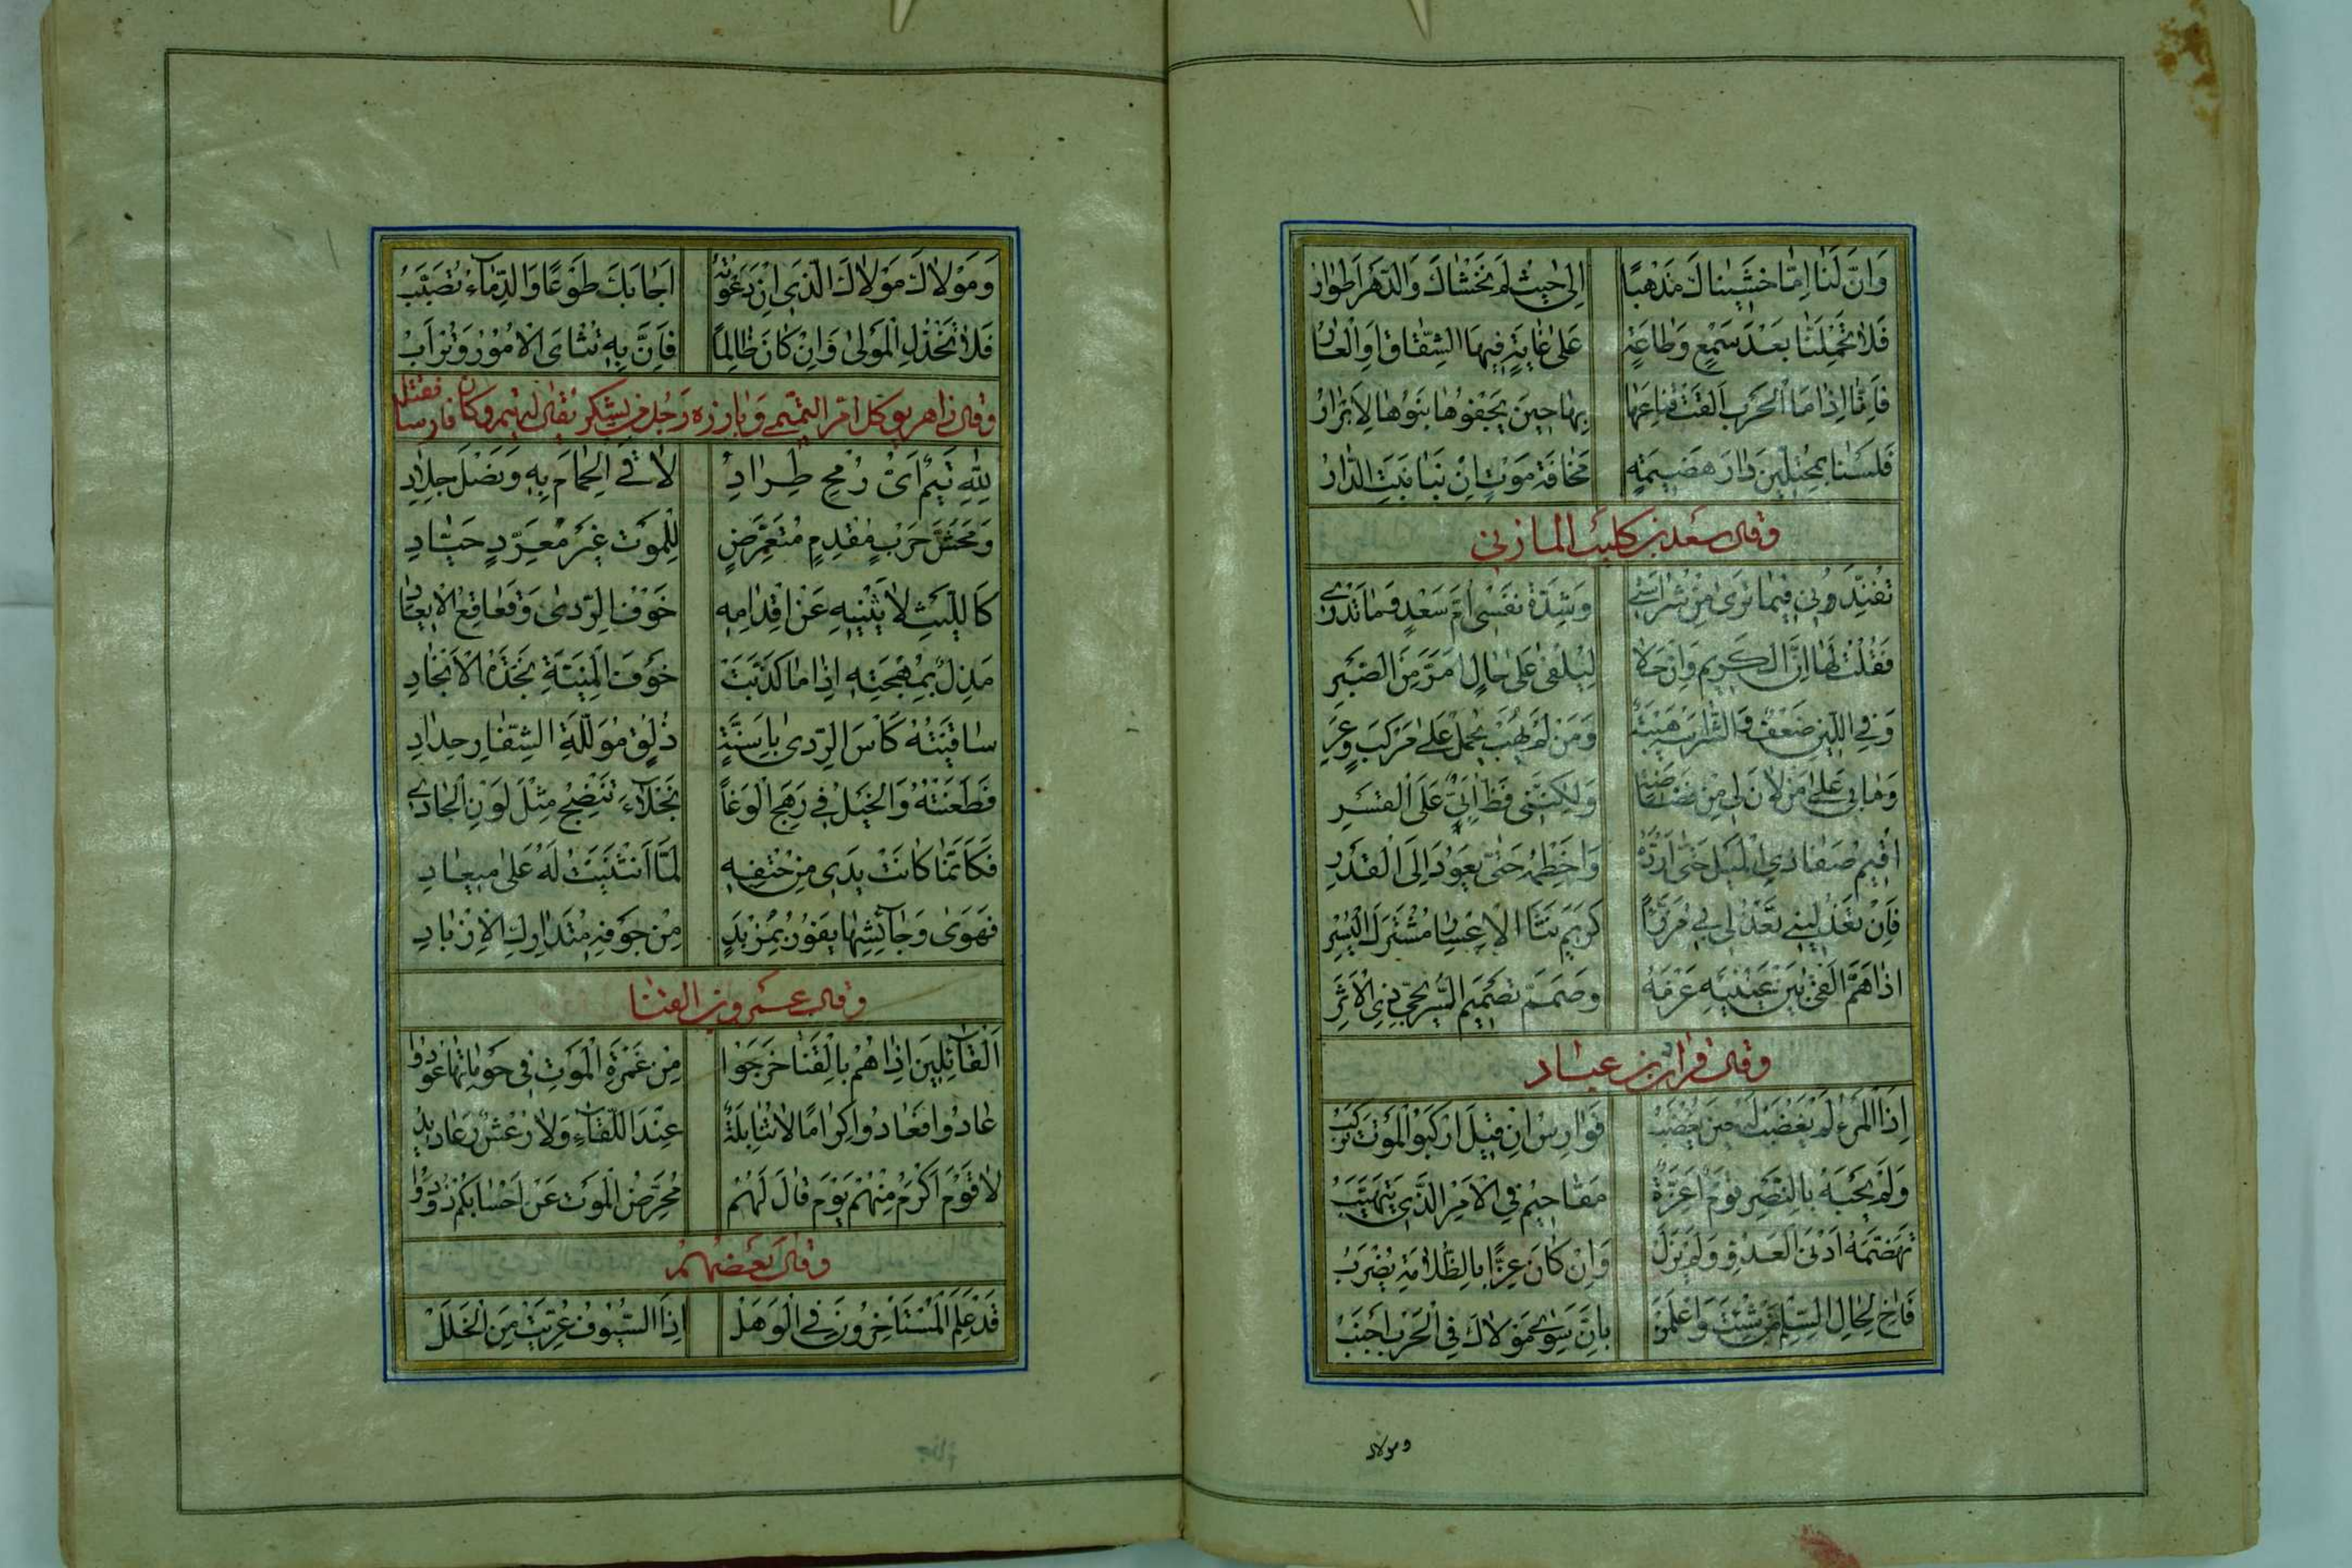 وَاِنَّ لَنَا اِمَّا خَشَيْنَاكَ مَذْهَبًا اِلى حَيْثُ لَمْ نَخْشَاكَ وَالدَّهْرُ اَطْوَارُ
فَلَا تَحْمِلَنَّا بَعْدَ سَمْعٍ وَطَاعَةٍ عَلى غَايَةٍ فِيهَا الشِّقَاقُ اَوِ الْعَارُ
فَاِنَّا اِذَا مَا الْحَرْبُ اَلْقَتْ قِنَاعَهَا بِهَا حِينَ يَجْفُوهَا بَنُوهَا لَاَبْرَارُ
فَلَسْنَا بِمُحْتَلِّينَ دَارَ هَضِيمَةٍ مَخَافَةَ مَوْتٍ اِنْ بِنَا نَبَتِ الدَّارُ
وقال سعد بن كليب المازنى
تُفَنِّدُونِي فِيمَا تَرَى مِنْ شَرَاسَتِي وَشِدَّةِ نَفْسِي اُمُّ سَعْدٍ وَمَا تَدْرِي
فَقُلْتُ لَهَا اِنَّ الْكَرِيمَ وَاِنْ حَلَا لَيُلْفَى عَلى حَالٍ اَمَرَّ مِنَ الصَّبْرِ
وَفِي اللِّينِ ضَعْفٌ وَالشَّرَاسَةُ هَيْبَةٌ وَمَنْ لَمْ يُهَبْ يُحْمَلْ عَلى مَرْكَبٍ وَعْرِ
وَمَا بِي عَلى مَنْ لَانَ لِي مِنْ فَظَاظَةٍ وَلكِنَّنِي فَظٌّ اَبِيٌّ عَلَى الْقَسْرِ
اُقِيمُ صَفَا ذِي الْمَيْلِ حَتّى اَرُدَّهُ وَاَخْطِمُهُ حَتّى يَعُودَ اِلَى الْقَدْرِ
فَاِنْ تَعْذُلِينِي تَعْذُلِي بِي مُرَزَّءًا كَرِيمَ نَثَا الْاِعْسَارِ مُشْتَرَكَ الْيُسْرِ
اِذَا هَمَّ اَلْقَى بَيْنَ عَيْنَيْهِ عَزْمَهُ وَصَمَّمَ تَصْمِيمَ السُّرَيْجِيِّ ذِي الْاَثْرِ
وقال قراد بن عباد
اِذَا الْمَرْءُ لَمْ يَغْضَبْ لَهُ حِينَ يَغْضَبُ فَوَارِسُ اِنْ قِيلَ ارْكَبُوا الْمَوْتَ يَرْكَبُوا
وَلَمْ يَحْبُهُ بِالنَّصْرِ قَوْمٌ اَعِزَّةٌ مَقَاحِيمُ فِي الْاَمْرِ الَّذِي يُتَهَيَّبُ
تَهَضَّمَهُ اَدْنَى الْعَدُوِّ وَلَمْ يَزَلْ وَاِنْ كَانَ عِزًّا بِالظُّلَامَةِ يُضْرَبُ
فَآخِ لِحَالِ السِّلْمِ مَنْ شِئْتَ وَاعْلَمَنْ بِاَنَّ سِوَى مَوْلَاكَ فِي الْحَرْبِ اَجْنَبُ
ومولاك
وَمَوْلَاكَ مَوْلَاكَ الَّذِي اِنْ دَعَوْتَهُ اَجَابَكَ طَوْعًا وَالدِّمَاءُ تُصَبَّبُ
فَلَا تَخْذُلِ الْمَوْلى وَاِنْ كَانَ ظَالِمًا فَاِنَّ بِهِ تُثْاَى الْاُمُورُ وَتُرْاَبُ
وقال زاهر بو كل امرا التميمي وبارزه رجل من يشكر يقال له تيم وكان فارسا فقتله
لِلّهِ تَيْمٌ اَىُّ رُمْحِ طِرَادِ لَاقَى الْحِمَامَ بِهِ وَنَصْلِ جِلَادِ
وَمَحَشِّ حَرْبٍ مُقْدِمٍ مُتَعَرِّضٍ لِلْمَوْتِ غَيْرِ مُعَرِّدٍ حَيَّادِ
كَاللَّيْثِ لَا يَثْنِيهِ عَنْ اِقْدَامِهِ خَوْفُ الرَّدى وَقَعَاقِعُ الْاِيعَادِ
مَذِلٌ بِمُهْجَتِهِ اِذَا مَا كَذَّبَتْ خَوْفَ الْمَنِيَّةِ نَجْدَةُ الْاَنْجَادِ
سَاقَيْتُهُ كَاْسَ الرَّدى بِاَسِنَّةٍ ذُلُقٍ مُوَلَّلَةِ الشِّفَارِ حِدَادِ
فَطَعَنْتُهُ وَالْخَيْلُ فِي رَهَجِ الْوَغَا نَجْلَاءَ تَنْضِحُ مِثْلَ لَوْنِ الْجَادِي
فَكَاَنَّمَا كَانَتْ يَدِي مِنْ حَتْفِهِ لَمَّا انْثَنَيْتُ لَهُ عَلى مِيعَادِ
فَهَوى وَجَائِشُهَا يَفُورُ بِمُزْبِدٍ مِنْ جَوْفِهِ مُتَدَارِكِ الْاِزْبَادِ
وقال عمرو بن القنا
اَلْقَائِلِينَ اِذَا هُمْ بِالْقَنَا خَرَجُوا مِنْ غَمْرَةِ الْمَوْتِ فِي حَوْمَاتِهَا عُودُوا
عَادُوا فَعَادُوا كِرَامًا لَا تَنَابِلَةٌ عِنْدَ اللِّقَاءِ وَلَا رُعْشٌ رَعَادِيدُ
لَا قَوْمَ اَكْرَمُ مِنْهُمْ يَوْمَ قَالَ لَهُمْ مُحَرِّضُ الْمَوْتِ عَنْ اَحْسَابِكُمْ ذُودُوا
وقال بعضهم
قَدْ عَلِمَ الْمُسْتَاْخِرُونَ فِي الْوَهَلْ اِذَا السُّيُوفُ عُرِّيَتْ مِنَ الْخَلَلْ